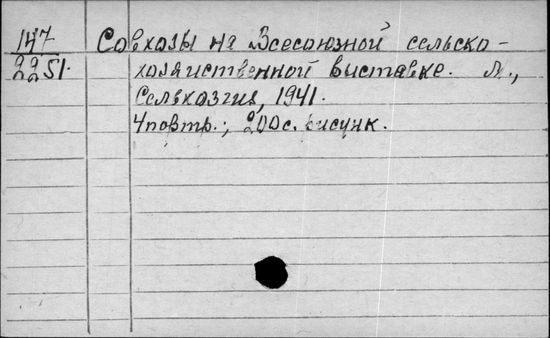 147 Совхозы на Всесоюзной сельско-
2251. хозяйственной выставке. М.,
Сельхозгиз, 1941.
4 повтр.; 200 с. рисунк.